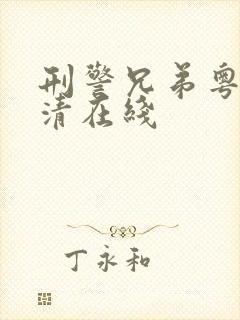 刑警兄弟粤
清在线
丁永和